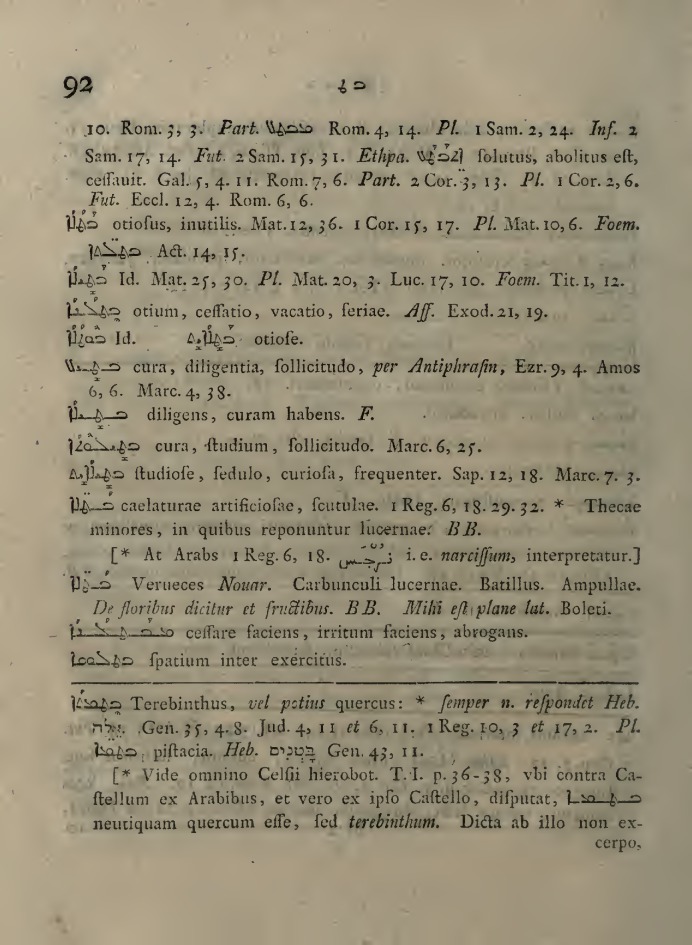 92 ܒܛ
10. Rom. 3, 3. Part. ܡܒܛܠ Rom. 4, 14. Pl. 1 Sam. 2, 24. Inf. 2
Sam. 17, 14. Fut. 2 Sam. 15, 31. Ethpa. ܐܬܒܛܠ ſolutus, abolitus eſt,
ceſſauit. Gal. 5, 4. 11. Rom. 7, 6. Part. 2 Cor. 3, 13. Pl. 1 Cor. 2, 6.
Fut. Eccl. 12, 4. Rom. 6, 6.
ܒܛܠܐ otioſus, inutilis. Mat. 12, 36. 1 Cor. 15, 17. Pl. Mat. 10, 6. Foem.
Act. 14, 15.
ܒܛܝܠܐ Id. Mat. 25, 30. Pl. Mat. 20, 3. Luc. 17, 10. Foem. Tit. 1, 12.
ܒܛܠܢܐ otium, ceſſatio, vacatio, feriae. Aff. Exod. 21, 19.
Id. ܒܛܠܐܝܬ otioſe.
ܒܛܝܠ cura, diligentia, ſollicitudo, per Antiphraſin, Ezr. 9, 4. Amos
6, 6. Marc. 4, 38.
ܒܛܝܠܐ diligens, curam habens. F.
ܒܛܝܠܘܬܐ cura, ſtudium, ſollicitudo. Marc. 6, 25.
ܒܛܝܠܐܝܬ ſtudioſe, ſedulo, curioſa, frequenter. Sap. 12, 18. Marc. 7. 3.
ܒܛܠܐ caelaturae artificioſae, ſcutulae. 1 Reg. 6, 18. 29. 32. * Thecae
minores, in quibus reponuntur lucernae. BB.
[* At Arabs 1 Reg. 6, 18. نرجس i. e. narciſſum, interpretatur.]
Verueces Nouar. Carbunculi lucernae. Batillus. Ampullae.
De floribus dicitur et fructibus. BB. Mihi eſt plane lat. Boleti.
ܡܒܛܠܢܐ ceſſare faciens, irritum faciens, abrogans.
ſpatium inter exercitus.
ܒܛܡܬܐ Terebinthus, vel potius quercus: * ſemper n. reſpondet Heb.
אלה Gen. 35, 4. 8. Jud. 4, 11 et 6, 11. 1 Reg. 10, 3 et 17, 2. Pl.
piſtacia. Heb. בָּטְנִים Gen. 43, 11.
[* Vide omnino Celſii hierobot. T. I. p. 36-38, vbi contra Ca-
ſtellum ex Arabibus, et vero ex ipſo Caſtello, diſputat, ܒܛܡܐ
neutiquam quercum eſſe, ſed terebinthum. Dicta ab illo non ex-
cerpo,